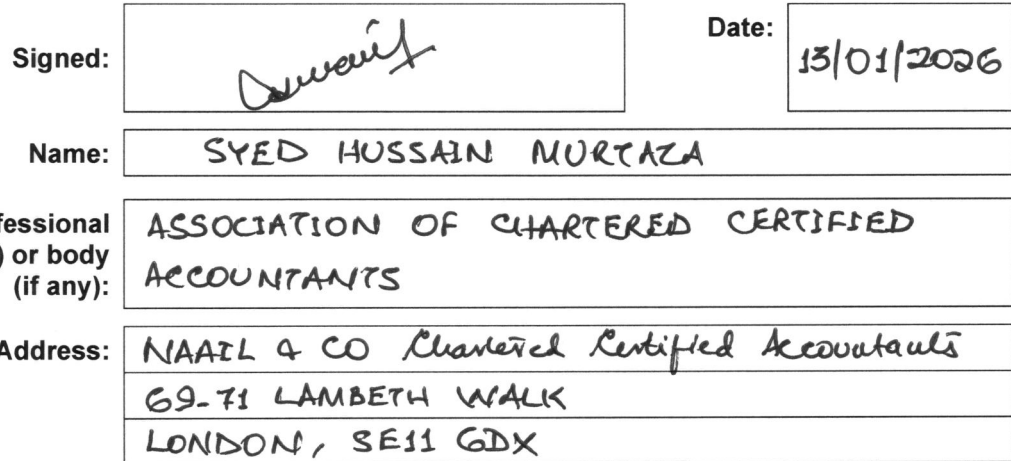 Signed:
Date:
13/01/2026
Name:
SYED HUSSAIN MURTAZA
fessional
) or body
(if any):
ASSOCIATION OF CHARTERED CERTIFIED
ACCOUNTANTS
Address:
NAAIL & CO Chartered Certified Accountants
69-71 LAMBETH WALK
LONDON, SE11 6DX